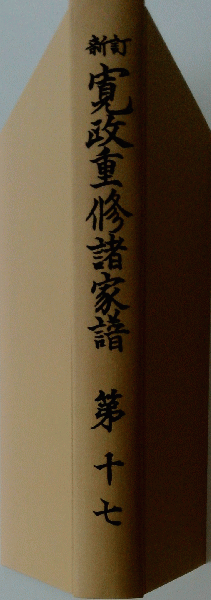 新訂
寛政重修諸家譜 第十七